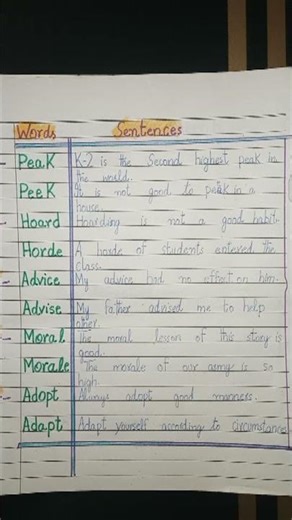 Words Sentences
Peak K-2 is the Second highest peak in
the world.
Peek It is not good to peek in a
house.
Hoard Hoarding is not a good habit.
Horde A horde of students entered the
class.
Advice My advice had no effect on him.
Advise My father advised me to help
other.
Moral The moral lesson of this story is
good.
Morale The morale of our army is so
high.
Adopt Always adopt good manners.
Adapt Adapt yourself according to circumstance